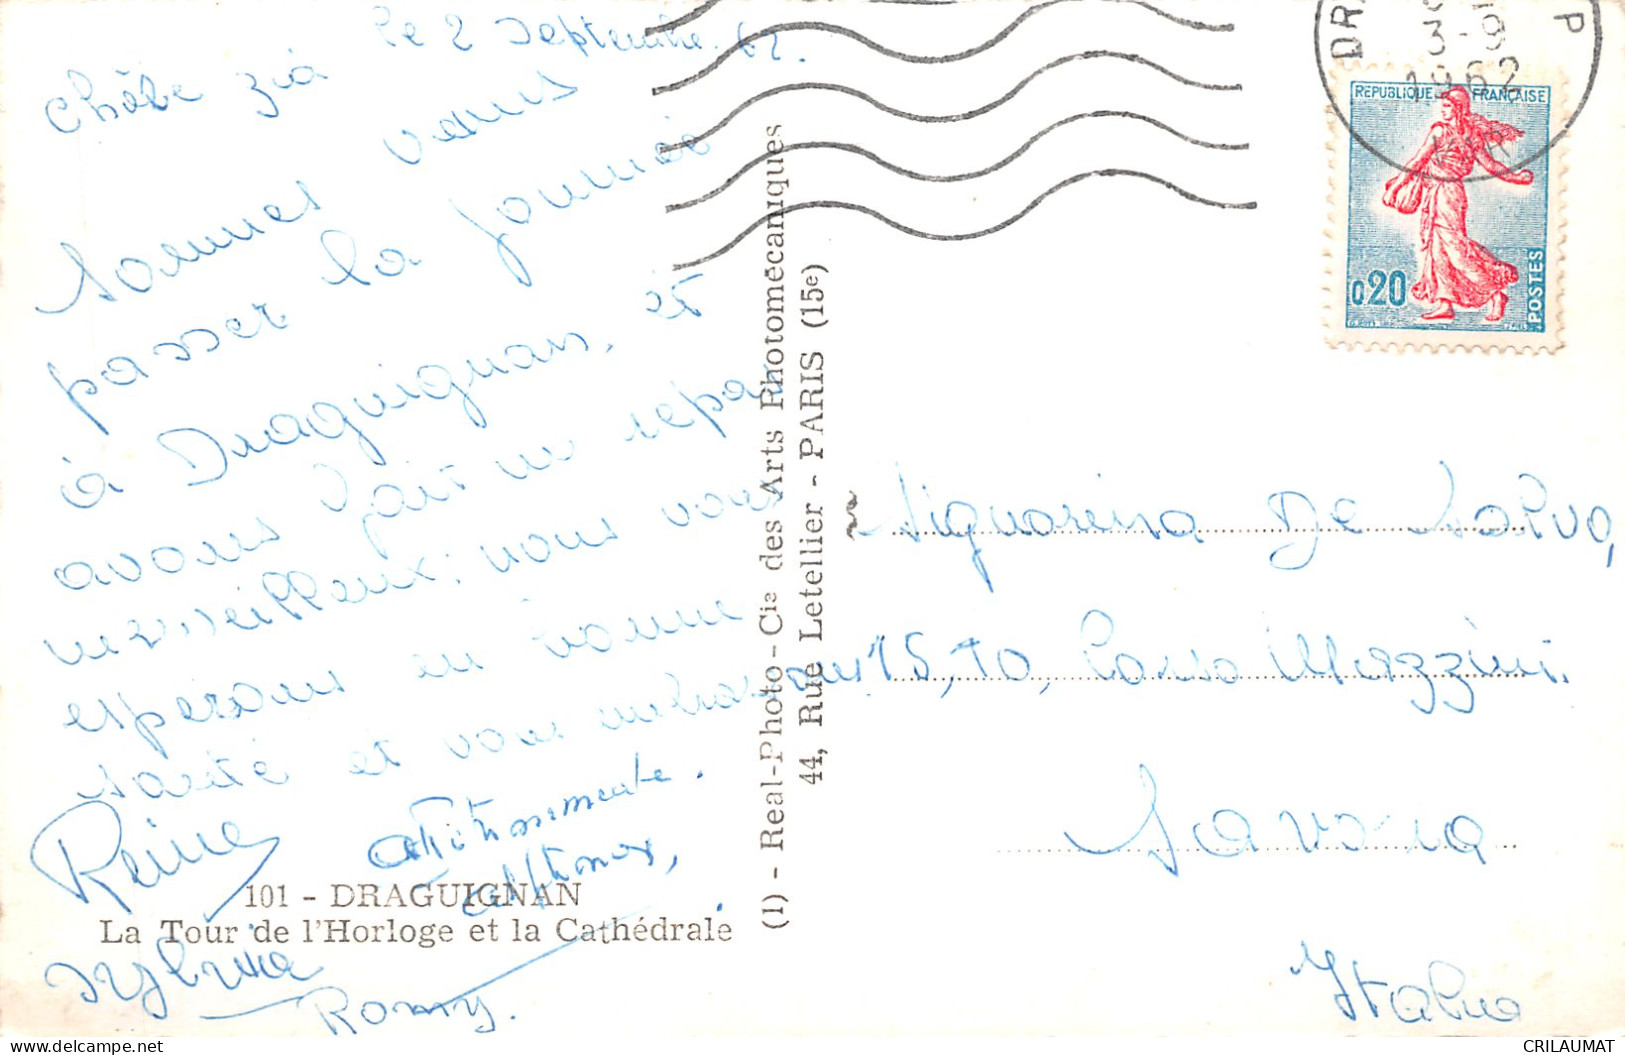 le 2 Septembre 62.
Chère zia
Sommes venus
passer la journée
à Draguignan, et
avons fait un repas
merveilleux; nous vous
esperons en bonne
santé et vous embrassons
affettuosamente.
Reine
Alphonse,
Sylvia
Romy.
101 - DRAGUIGNAN
La Tour de l'Horloge et la Cathédrale
(1) - Real-Photo-Cie des Arts Photomécaniques
44, Rue Letellier - PARIS (15e)
3-9
1962
VAR
REPUBLIQUE FRANÇAISE
0,20
POSTES
Signorina De Salvo,
15, 10, Corso Mazzini.
Savona
Italia
CRILAUMAT